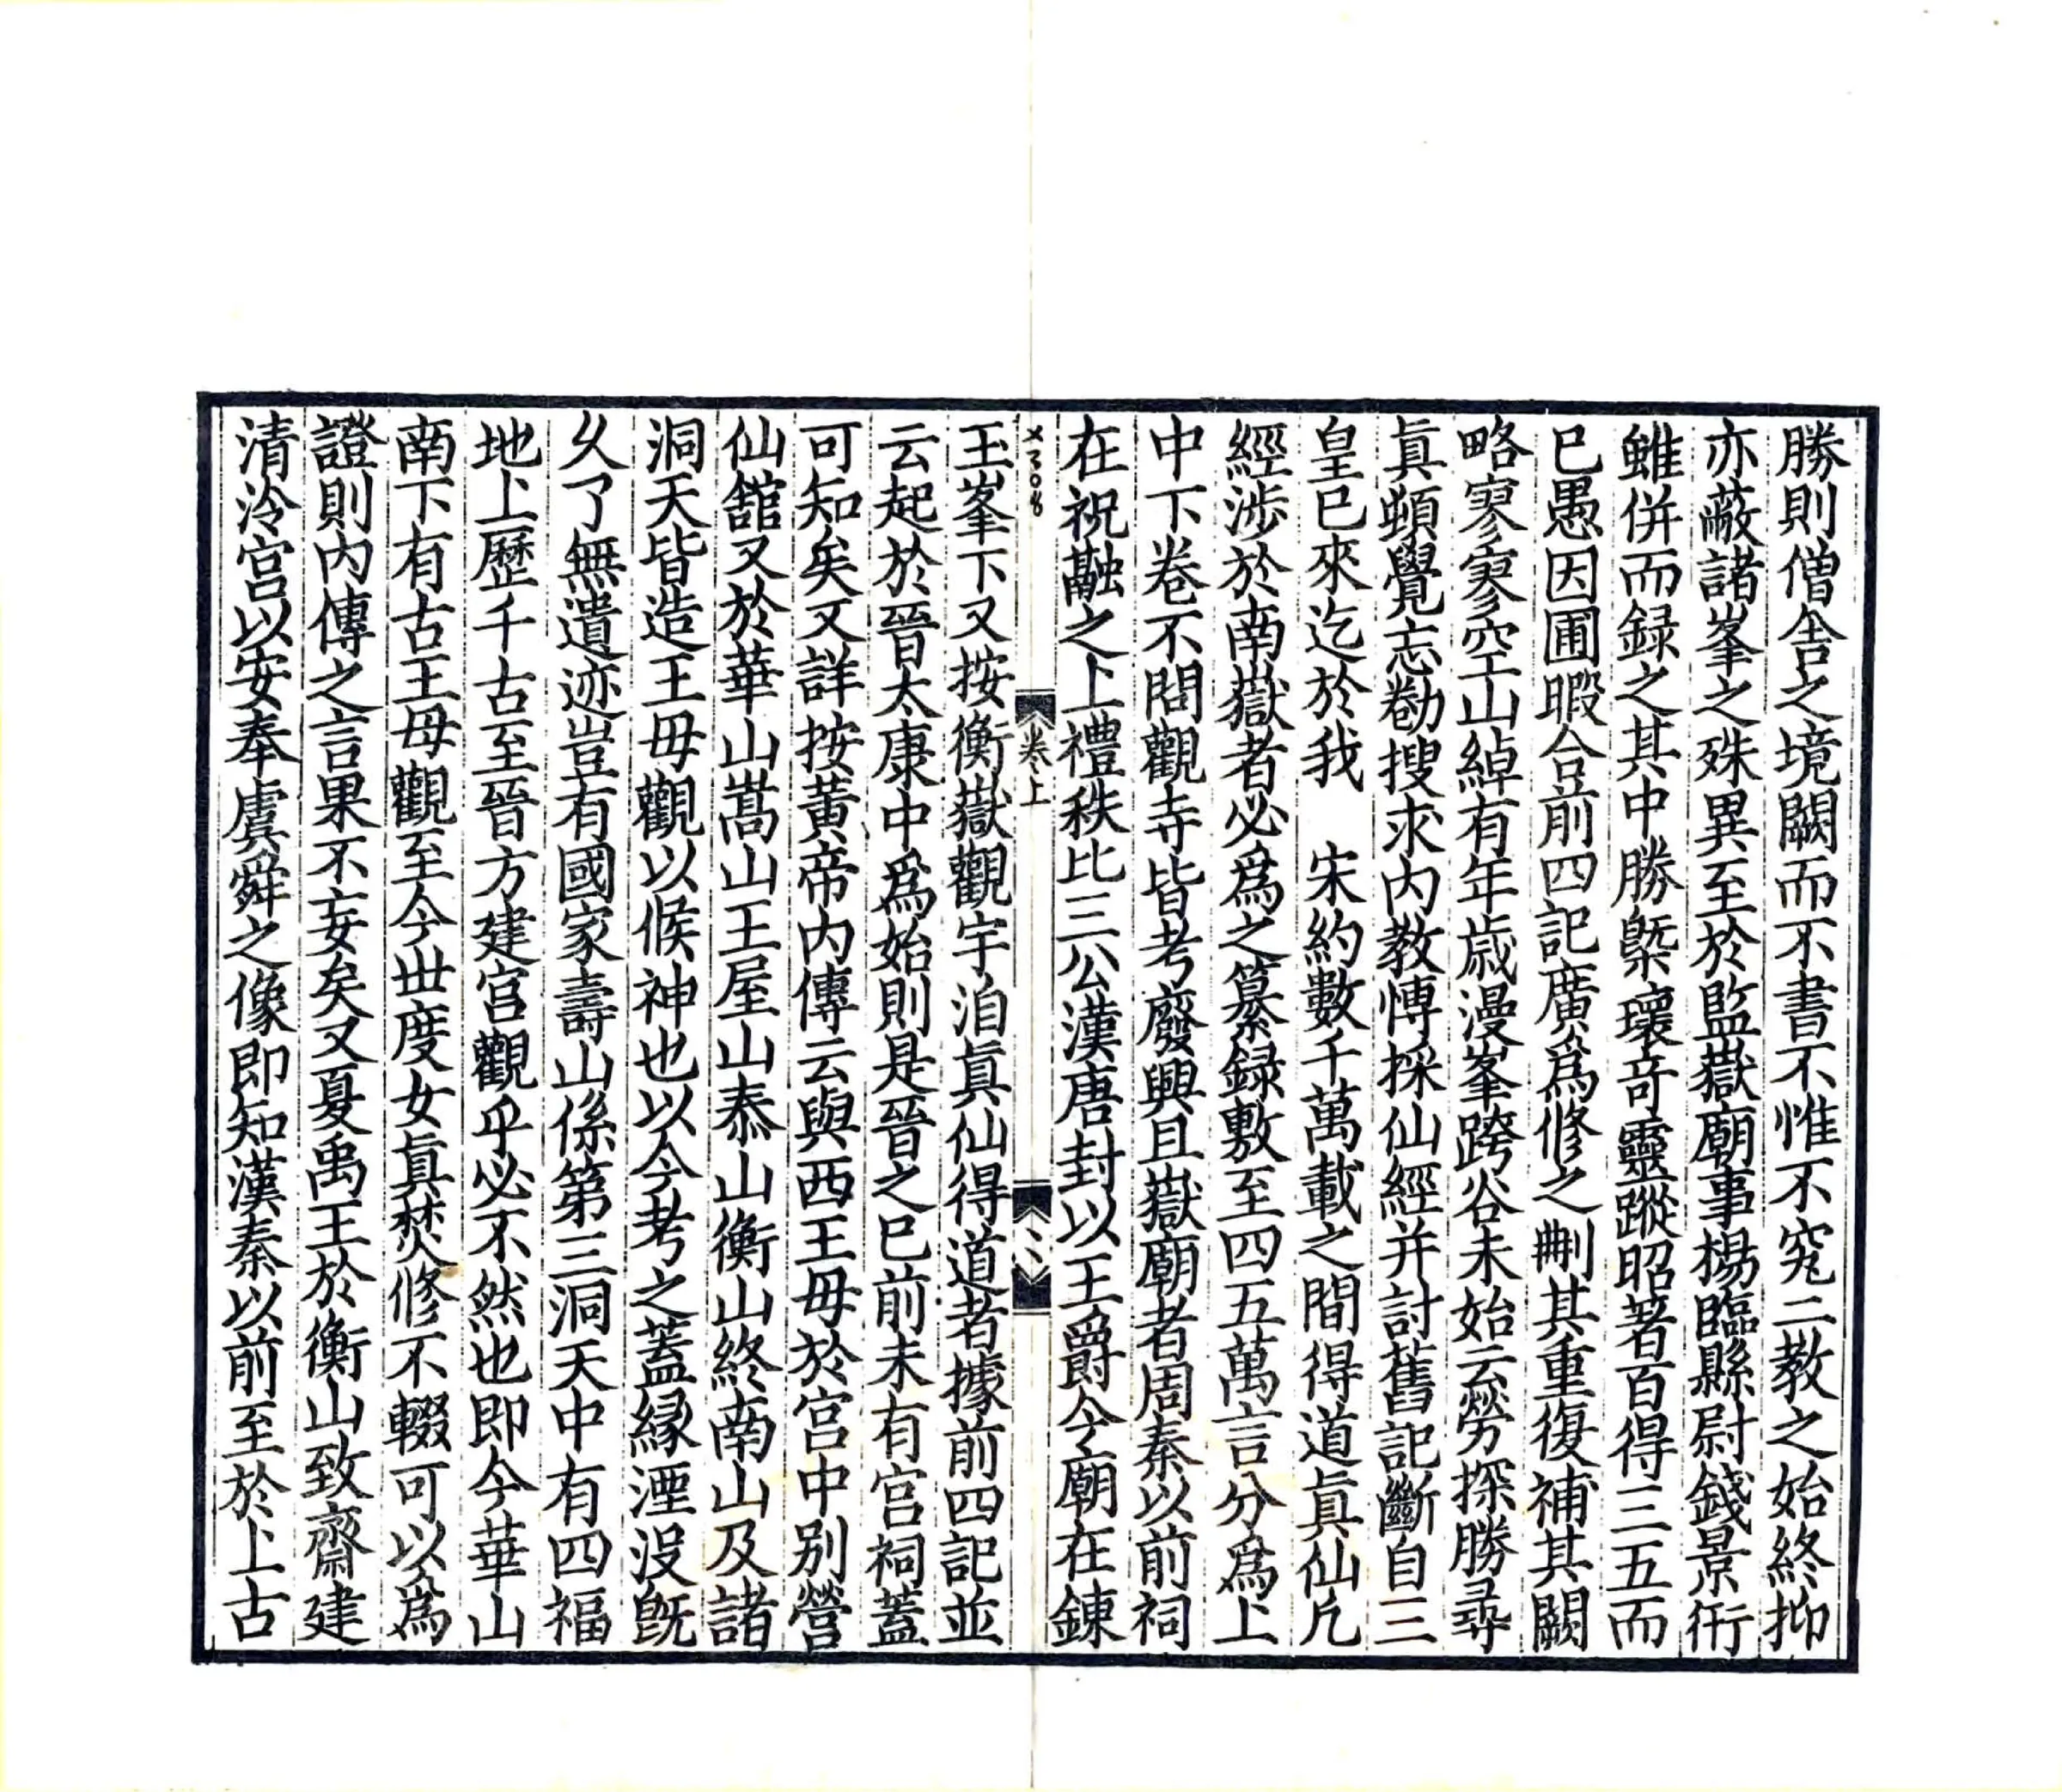 勝則僧舎之境闕而不書不惟不究三教之始終抑
亦蔽諸峯之殊異至於監嶽廟事楊臨縣尉錢景衎
雖併而録之其中勝槩瓌竒靈蹤昭著百得三五而
已愚因圃暇合前四記廣爲修之刪其重復補其闕
略寥寥空山綽有年歳漫峯跨谷未始云勞探勝尋
眞頓覺忘勌搜求内教愽採仙經并討舊記斷自三
皇已來迄於我　宋約數千萬載之間得道眞仙凡
經涉於南嶽者必爲之纂録數至四五萬言分爲上
中下卷不問觀寺皆考廢興且嶽廟者周秦以前祠
在祝融之上禮秩比三公漢唐封以王爵今廟在錬
卷上
八
玉峯下又按衡嶽觀宇洎眞仙得道者據前四記並
云起於晉太康中爲始則是晉之已前未有宫祠蓋
可知矣又詳按黄帝内傳云與西王毋於宫中别營
仙舘又於華山嵩山王屋山泰山衡山終南山及諸
洞天皆造王毋觀以候神也以今考之蓋緣湮没既
乆了無遺迹豈有國家壽山係第三洞天中有四福
地上歷千古至晉方建宫觀乎必不然也即今華山
南下有古王母觀至今丗度女眞焚修不輟可以爲
證則内傳之言果不妄矣又夏禹王於衡山致齋建
清泠宫以安奉虞舜之像即知漢秦以前至於上古